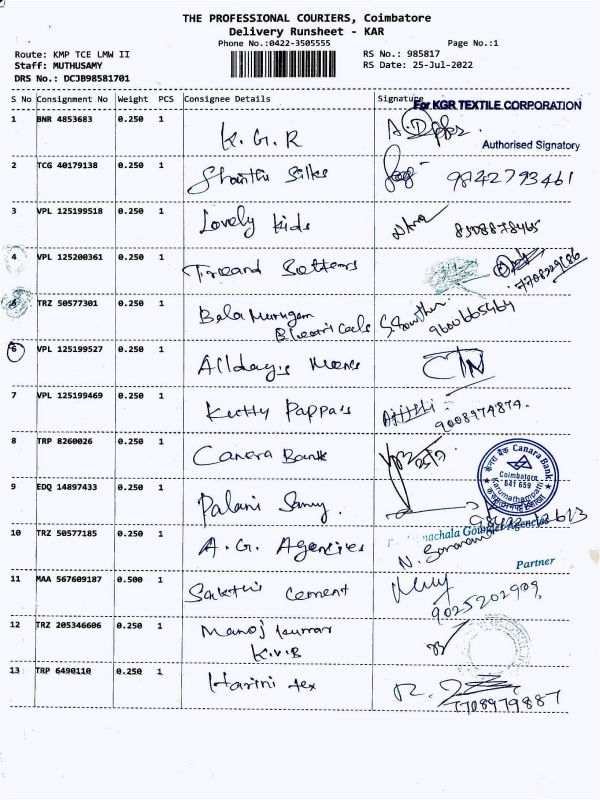 THE PROFESSIONAL COURIERS, Coimbatore
Delivery Runsheet - KAR
Phone No.:0422-3505555 Page No.:1
Route: KMP TCE LMW II RS No.: 985817
Staff: MUTHUSAMY RS Date: 25-Jul-2022
DRS No.: DCJB98581701
S No Consignment No Weight PCS Consignee Details Signature
For KGR TEXTILE CORPORATION
1 BNR 4853683 0.250 1 K.G.R
Authorised Signatory
2 TCG 40179138 0.250 1 Shanthi Silks 9842793461
3 VPL 125199518 0.250 1 Lovely kids 8508878465
4 VPL 125200361 0.250 1 7708229186
5 TRZ 50577301 0.250 1 Bala Murugan 9600665464
6 VPL 125199527 0.250 1 Allday's
7 VPL 125199469 0.250 1 Kutty Pappa's 9008974874.
8 TRP 8260026 0.250 1 Canara Bank
केनरा बैंक Canara Bank
Coimbatore
641 659
Karumathampatti
9 EDQ 14897433 0.250 1 Palani Samy.
10 TRZ 50577185 0.250 1 A.G. Agencies
Partner
11 MAA 567609187 0.500 1 Sakthi Cement 9025202909
12 TRZ 205346606 0.250 1 Manoj kumar
K.V.B
13 TRP 6490110 0.250 1 Harini tex 7708979887